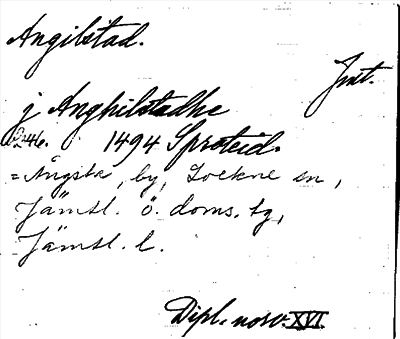 Angilstad.
Jmt.
j Anghilstadhe
246. 1494 Sproteid.
= Ångsta, by, Lockne sn,
Jämtl. ö. doms. tg,
Jämtl. l.
Dipl. norv. XVI.